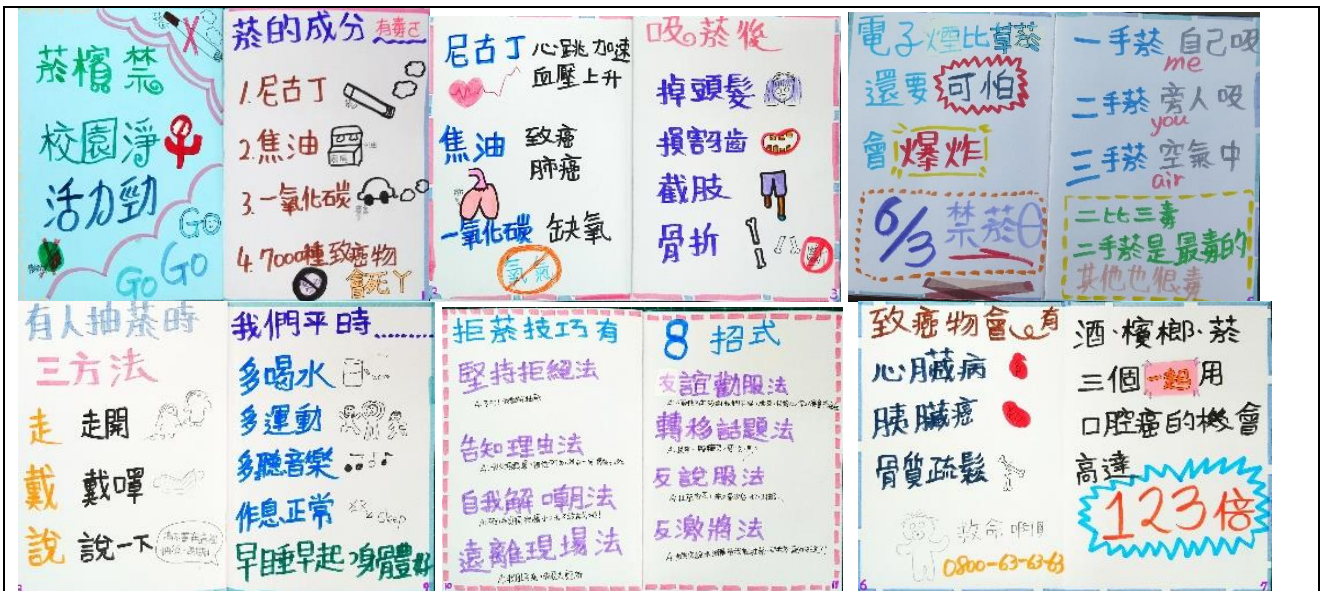 菸檳禁
校園淨
活力勁
Go
Go
Go
菸的成分 有毒ㄛ
1.尼古丁
2.焦油
3.一氧化碳
4.7000種致癌物
會死ㄚ
尼古丁 心跳加速
血壓上升
焦油 致癌
肺癌
一氧化碳 缺氧
氧氣
2
吸菸後
掉頭髮
損害牙齒
截肢
骨折
3
電子煙比草菸
還要可怕
會爆炸
6/3 禁菸日
一手菸 自己吸
me
二手菸 旁人吸
you
三手菸 空氣中
air
二比三毒
二手菸是最毒的
其他也很毒
有人抽菸時
三方法
走 走開
戴 戴罩
說 說一下
我們平時........
多喝水
多運動
多聽音樂
作息正常
早睡早起身體好
9
拒菸技巧有
堅持拒絕法
告知理由法
自我解嘲法
遠離現場法
10
8招式
友誼勸服法
轉移話題法
反說服法
反激將法
11
致癌物會有
心臟病
胰臟癌
骨質疏鬆
救命啊
0800-63-63-63
6
酒·檳榔·菸
三個一起用
口腔癌的機會
高達
123倍
7